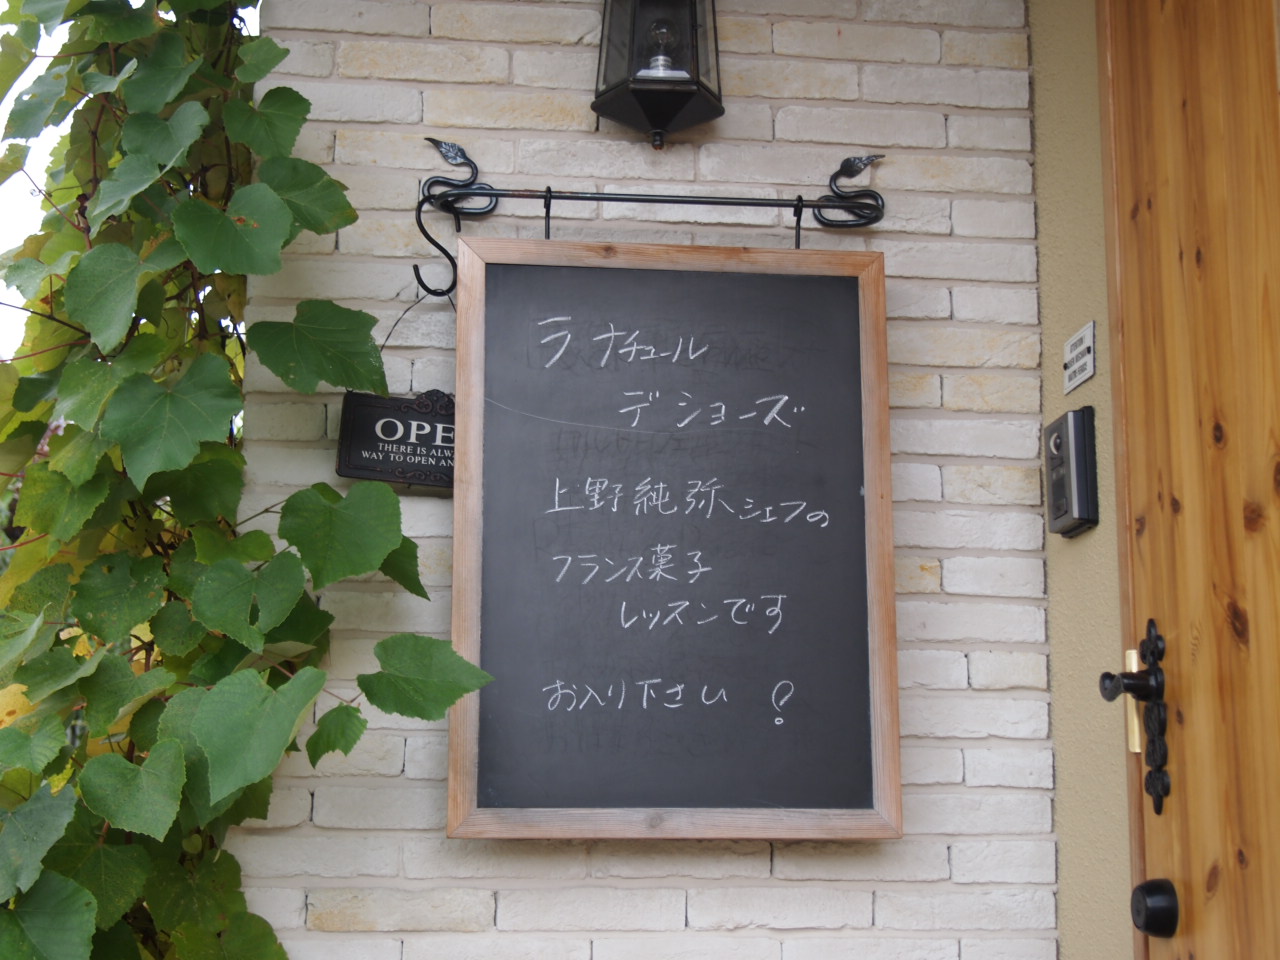 ラ ナチュール
デ ショーズ
上野純弥シェフの
フランス菓子
レッスンです
お入り下さい!
OPE
THERE IS ALW
WAY TO OPEN AN